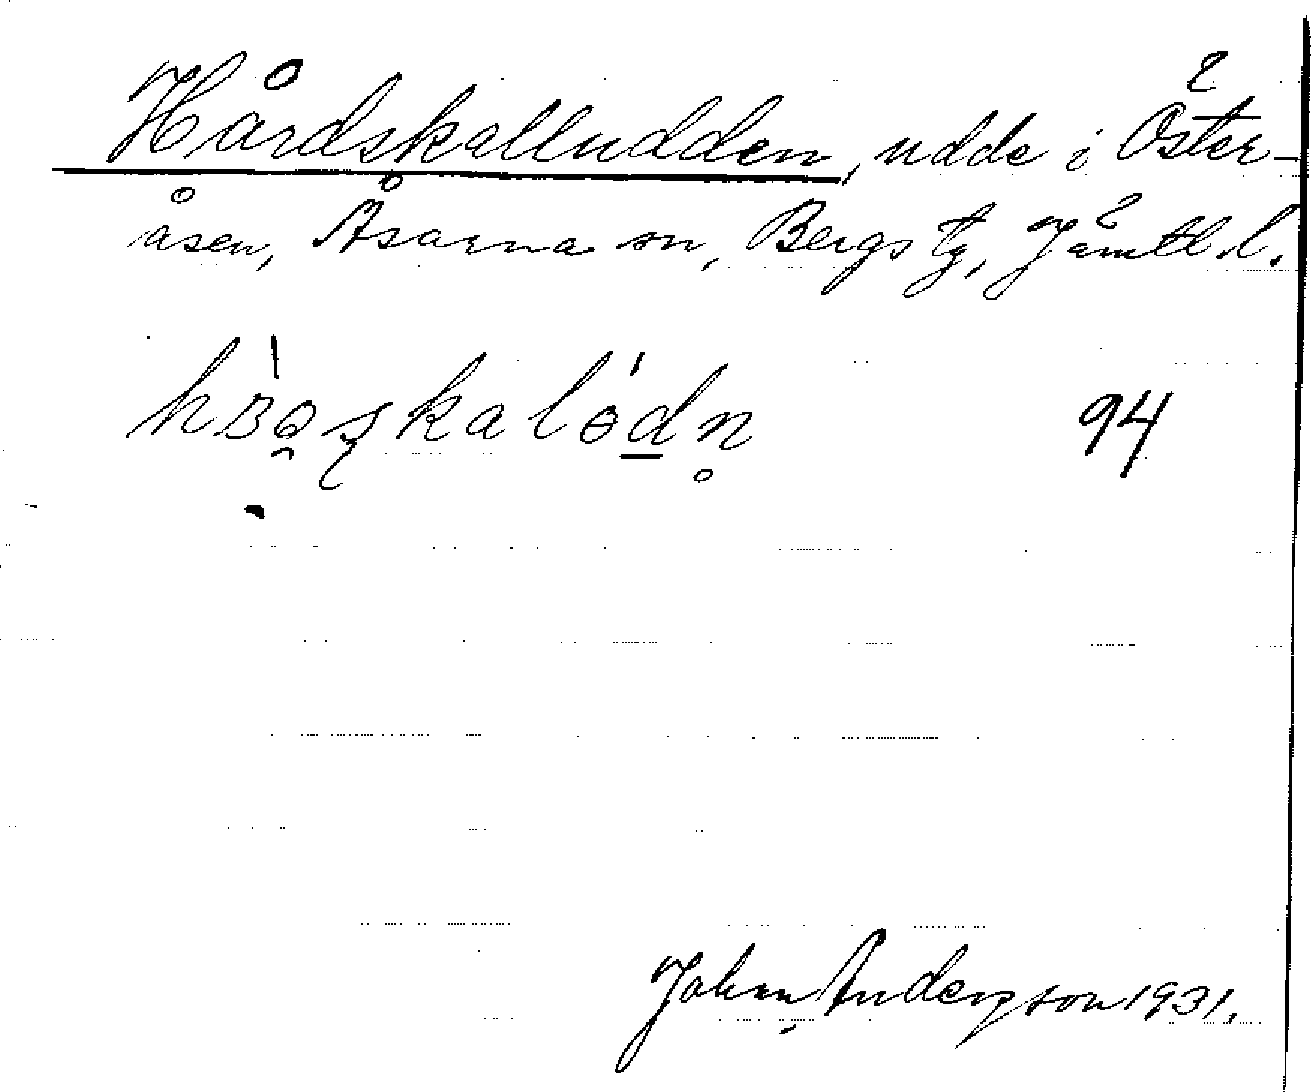 Hårdskalludden, udde i Öster-
åsen, Åsarna sn, Bergs tg, Jämtl. l.
94
Johan Anderson 1931.